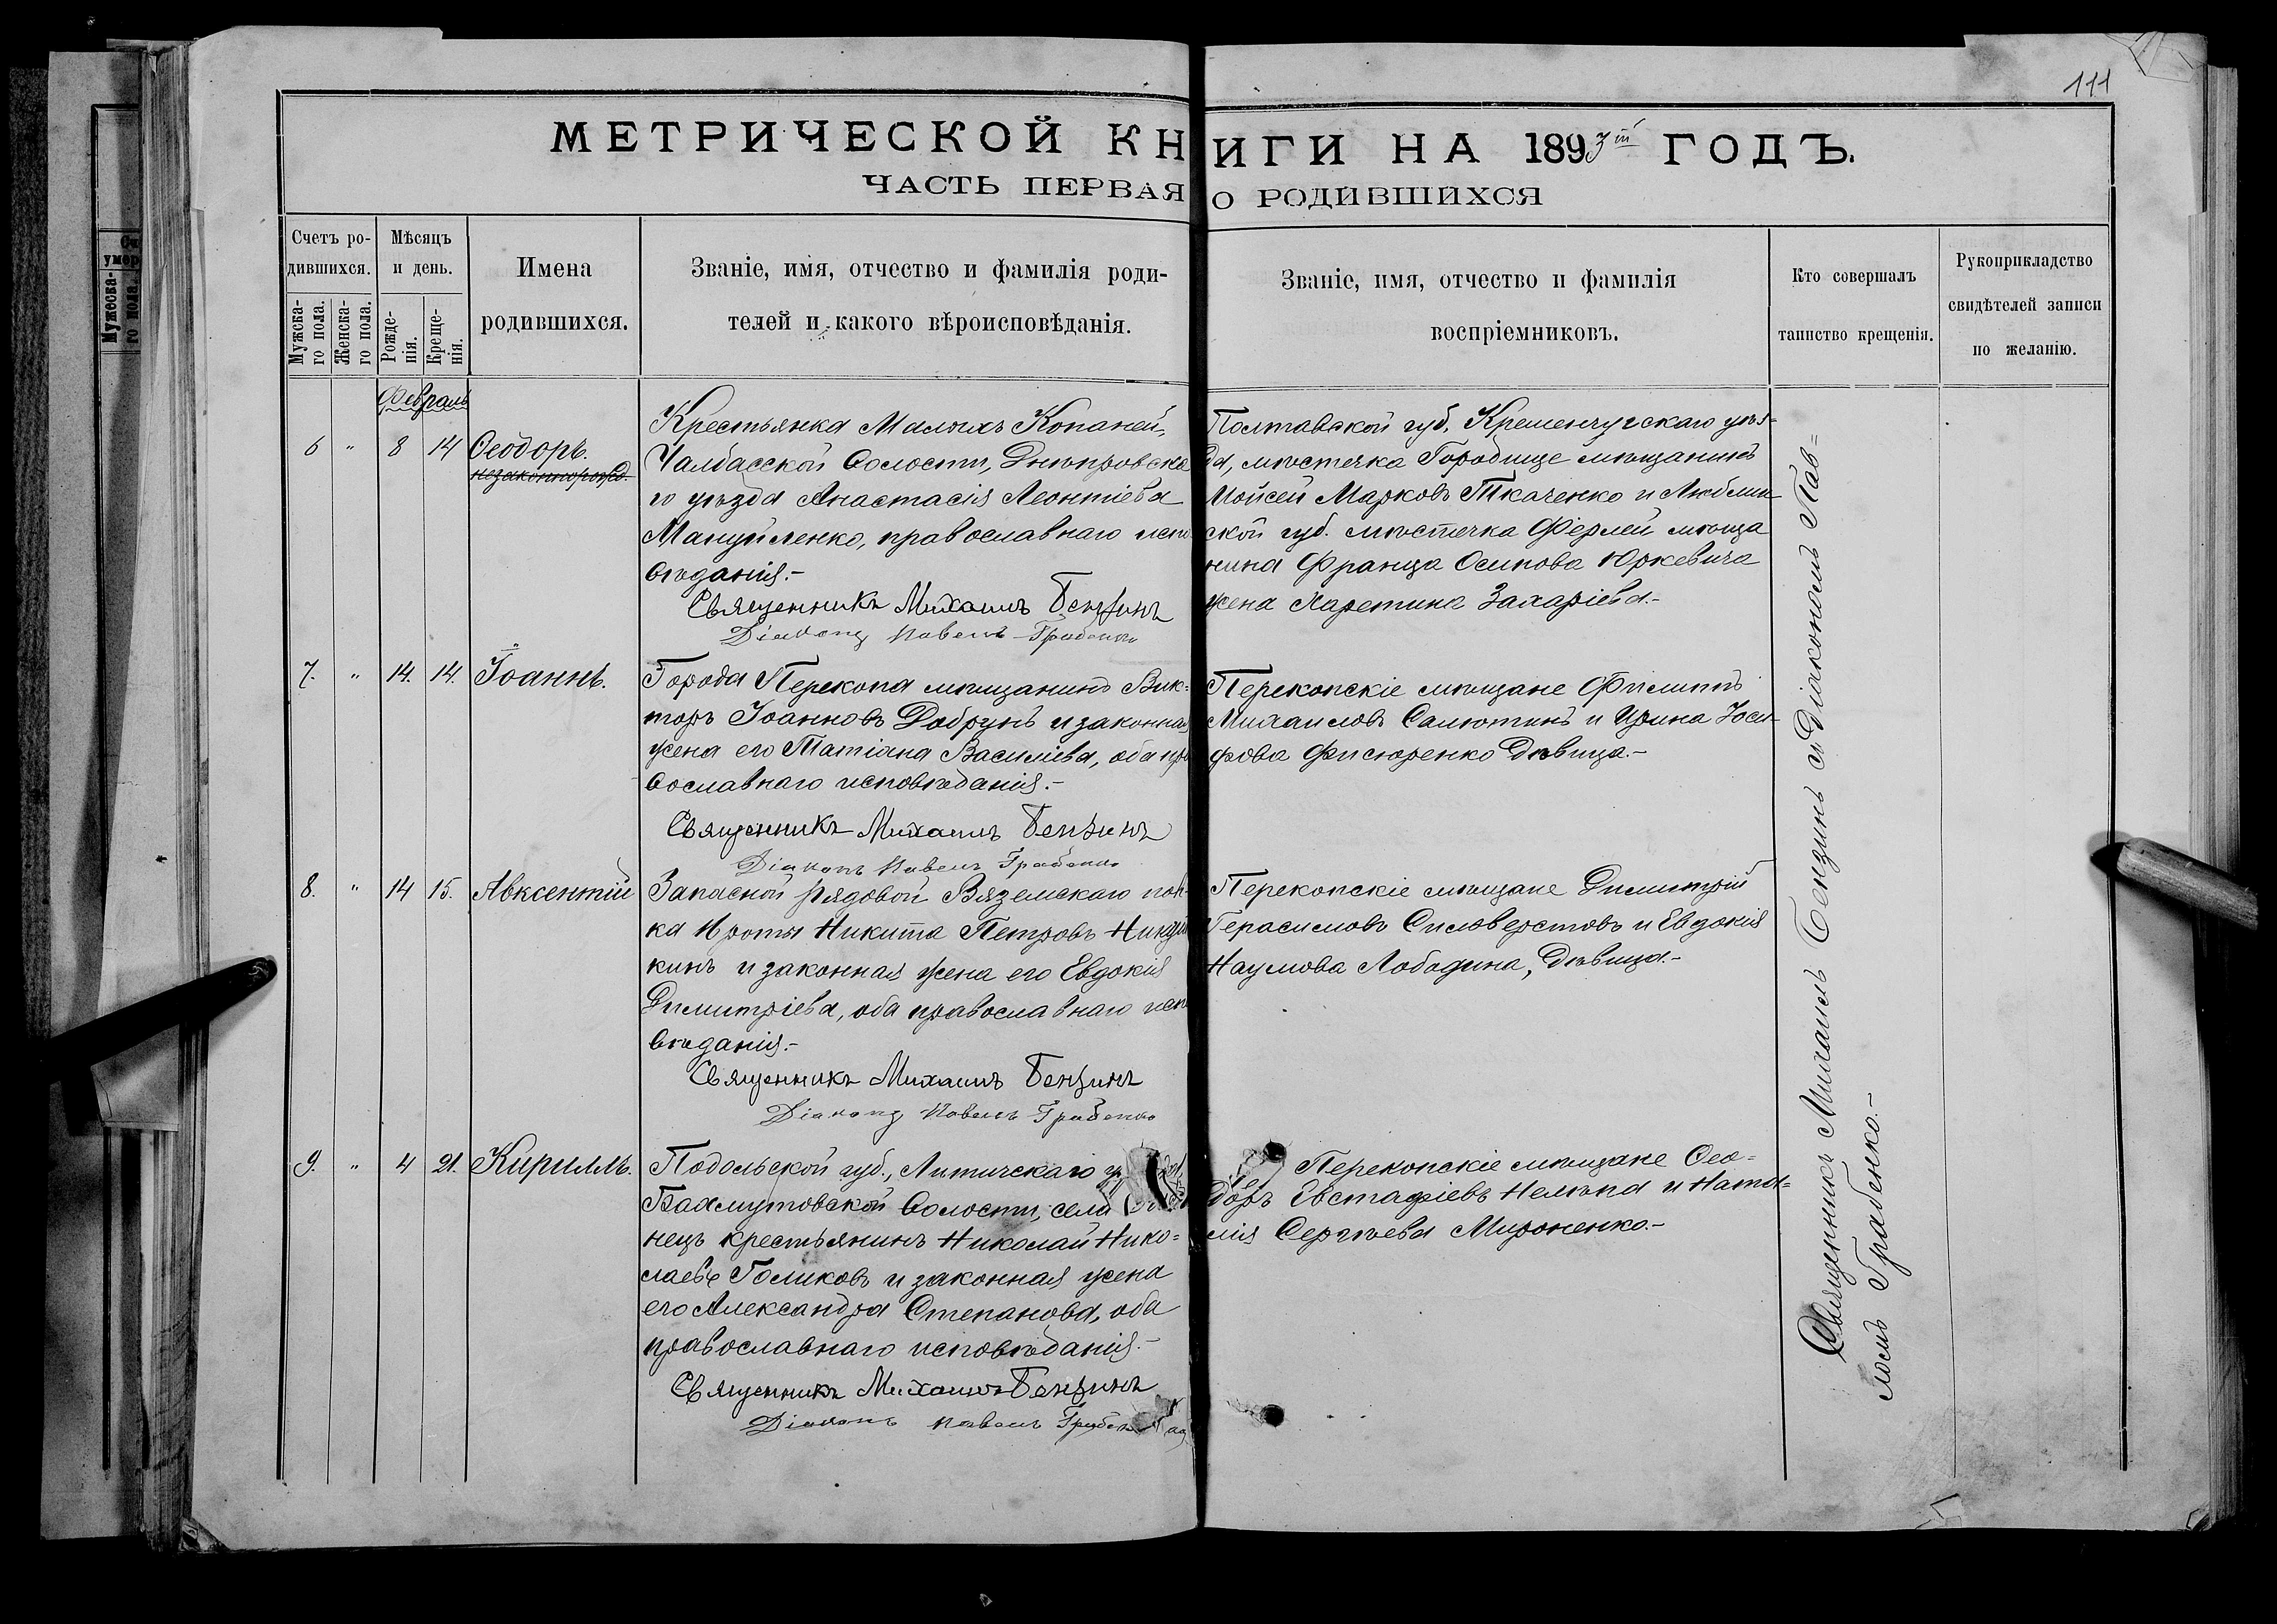 111
МЕТРИЧЕСКОЙ КНИГИ НА 1893ій ГОДЪ.
ЧАСТЬ ПЕРВАЯ О РОДИВШИХСЯ
Счетъ ро-
дившихся.
Мужска-
го пола.
Женска-
го пола.
Мѣсяцъ
и день.
Рожде-
нія.
Креще-
нія.
Имена
родившихся.
Званіе, имя, отчество и фамилія роди-
телей и какого вѣроисповѣданія.
Званіе, имя, отчество и фамилія
воспріемниковъ.
Кто совершалъ
таинство крещенія.
Рукоприкладство
свидѣтелей записи
по желанію.
Февраль
6 " 8 14 Ѳеодоръ.
незаконнорожд.
Крестьянка Малыхъ Копаней,
Чалбасской волости, Днѣпровска
го уѣзда Анастасія Леонтіева
Мануйленко, православнаго испо
вѣданія.-
Священникъ Михаилъ Бензинъ
Діаконъ Павелъ Грабенко
Полтавской губ. Кременчугскаго уѣз-
да, мѣстечка Городище мѣщанинъ
Мойсей Марковъ Ткаченко и Люблин
ской губ. мѣстечка Ферлей мѣща
нина Франца Осипова Юркевича
жена Харетина Захаріева.-
7. " 14. 14. Іоаннъ.
Города Перекопа мѣщанинъ Вик-
торъ Іоанновъ Добрунъ и законная
жена его Татіана Василіева, оба пра
вославнаго исповѣданія.-
Священникъ Михаилъ Бензинъ
Діаконъ Павелъ Грабенко
Перекопскіе мѣщане Филиппъ
Михаиловъ Салютинъ и Ирина Іоси-
фова Фисюренко дѣвица.-
8. " 14 15. Авксентій
Запасной рядовой Вяземскаго пол-
ка роты Никита Петровъ
кинъ и законная жена его Евдокія
Димитріева, оба православнаго испо
вѣданія.-
Священникъ Михаилъ Бензинъ
Діаконъ Павелъ Грабенко
Перекопскіе мѣщане Димитрій
Герасимовъ Силоверстовъ и Евдокія
Наумова Лободина, дѣвица.-
9. " 4 21. Кириллъ.
Подольской губ., Литичскаго
Бахмутовской волости, села
нецъ крестьянинъ Николай Нико-
лаевъ Голиковъ и законная жена
его Александра Степанова, оба
православнаго исповѣданія.-
Священникъ Михаилъ Бензинъ
Діаконъ Павелъ
Перекопскіе мѣщане Ѳео-
доръ Евстафіевъ Нелѣпа и Ната-
лія Сергѣева Мироненко.-
Священникъ Михаилъ Бензинъ съ Діакономъ Пав-
ломъ Грабенко.-